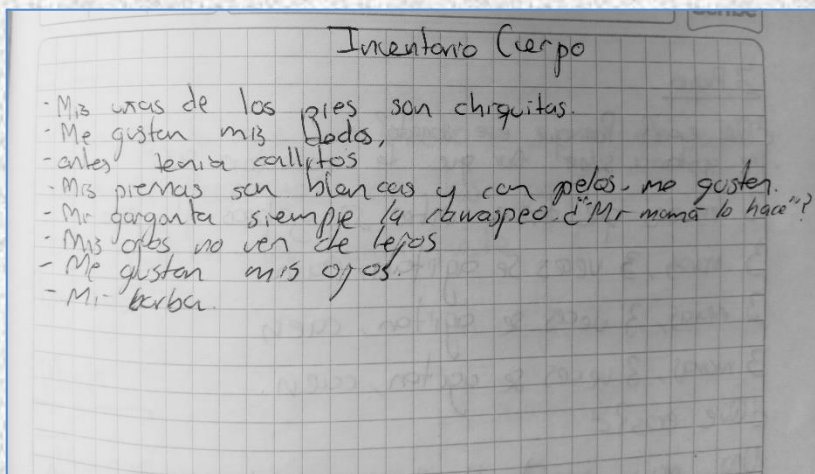 Inventario Cuerpo
- Mis uñas de los pies son chiquitas.
- Me gustan mis dedos,
- antes tenia callitos
- Mis piernas son blancas y con pelos. me gustan.
- Mi garganta siempre la carraspeo. ¿"Mi mamá lo hace"?
- Mis ojos no ven de lejos
- Me gustan mis ojos.
- Mi barba.